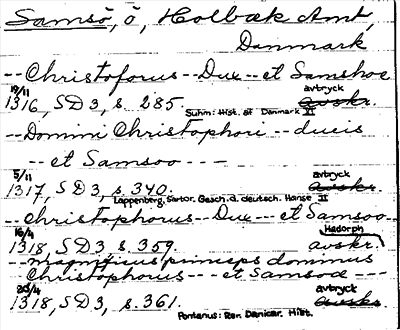 Samsö, ö, Holbæk Amt,
Danmark
-- Christoforus -- Dux -- et Samshoe
19/11 avtryck
1316, SD3, s. 285. avskr.
Suhm: Hist. af Danmark XI
-- Domini Christophori -- ducis
-- et Samsoo ---
5/11 avtryck
1317, SD3, s. 340. avskr.
Lappenberg, Sartor. Gesch. d. deutsch. Hanse II
-- Christophorus -- Dux -- et Samsoo --
16/4 Hadorph
1318, SD3 s. 359. avskr.
-- magnificus princeps dominus
Christophorus --- et Samsoe ---
20/4 avtryck
1318, SD3, s. 361. avskr.
Pontanus: Rer. Danicar. Hist.